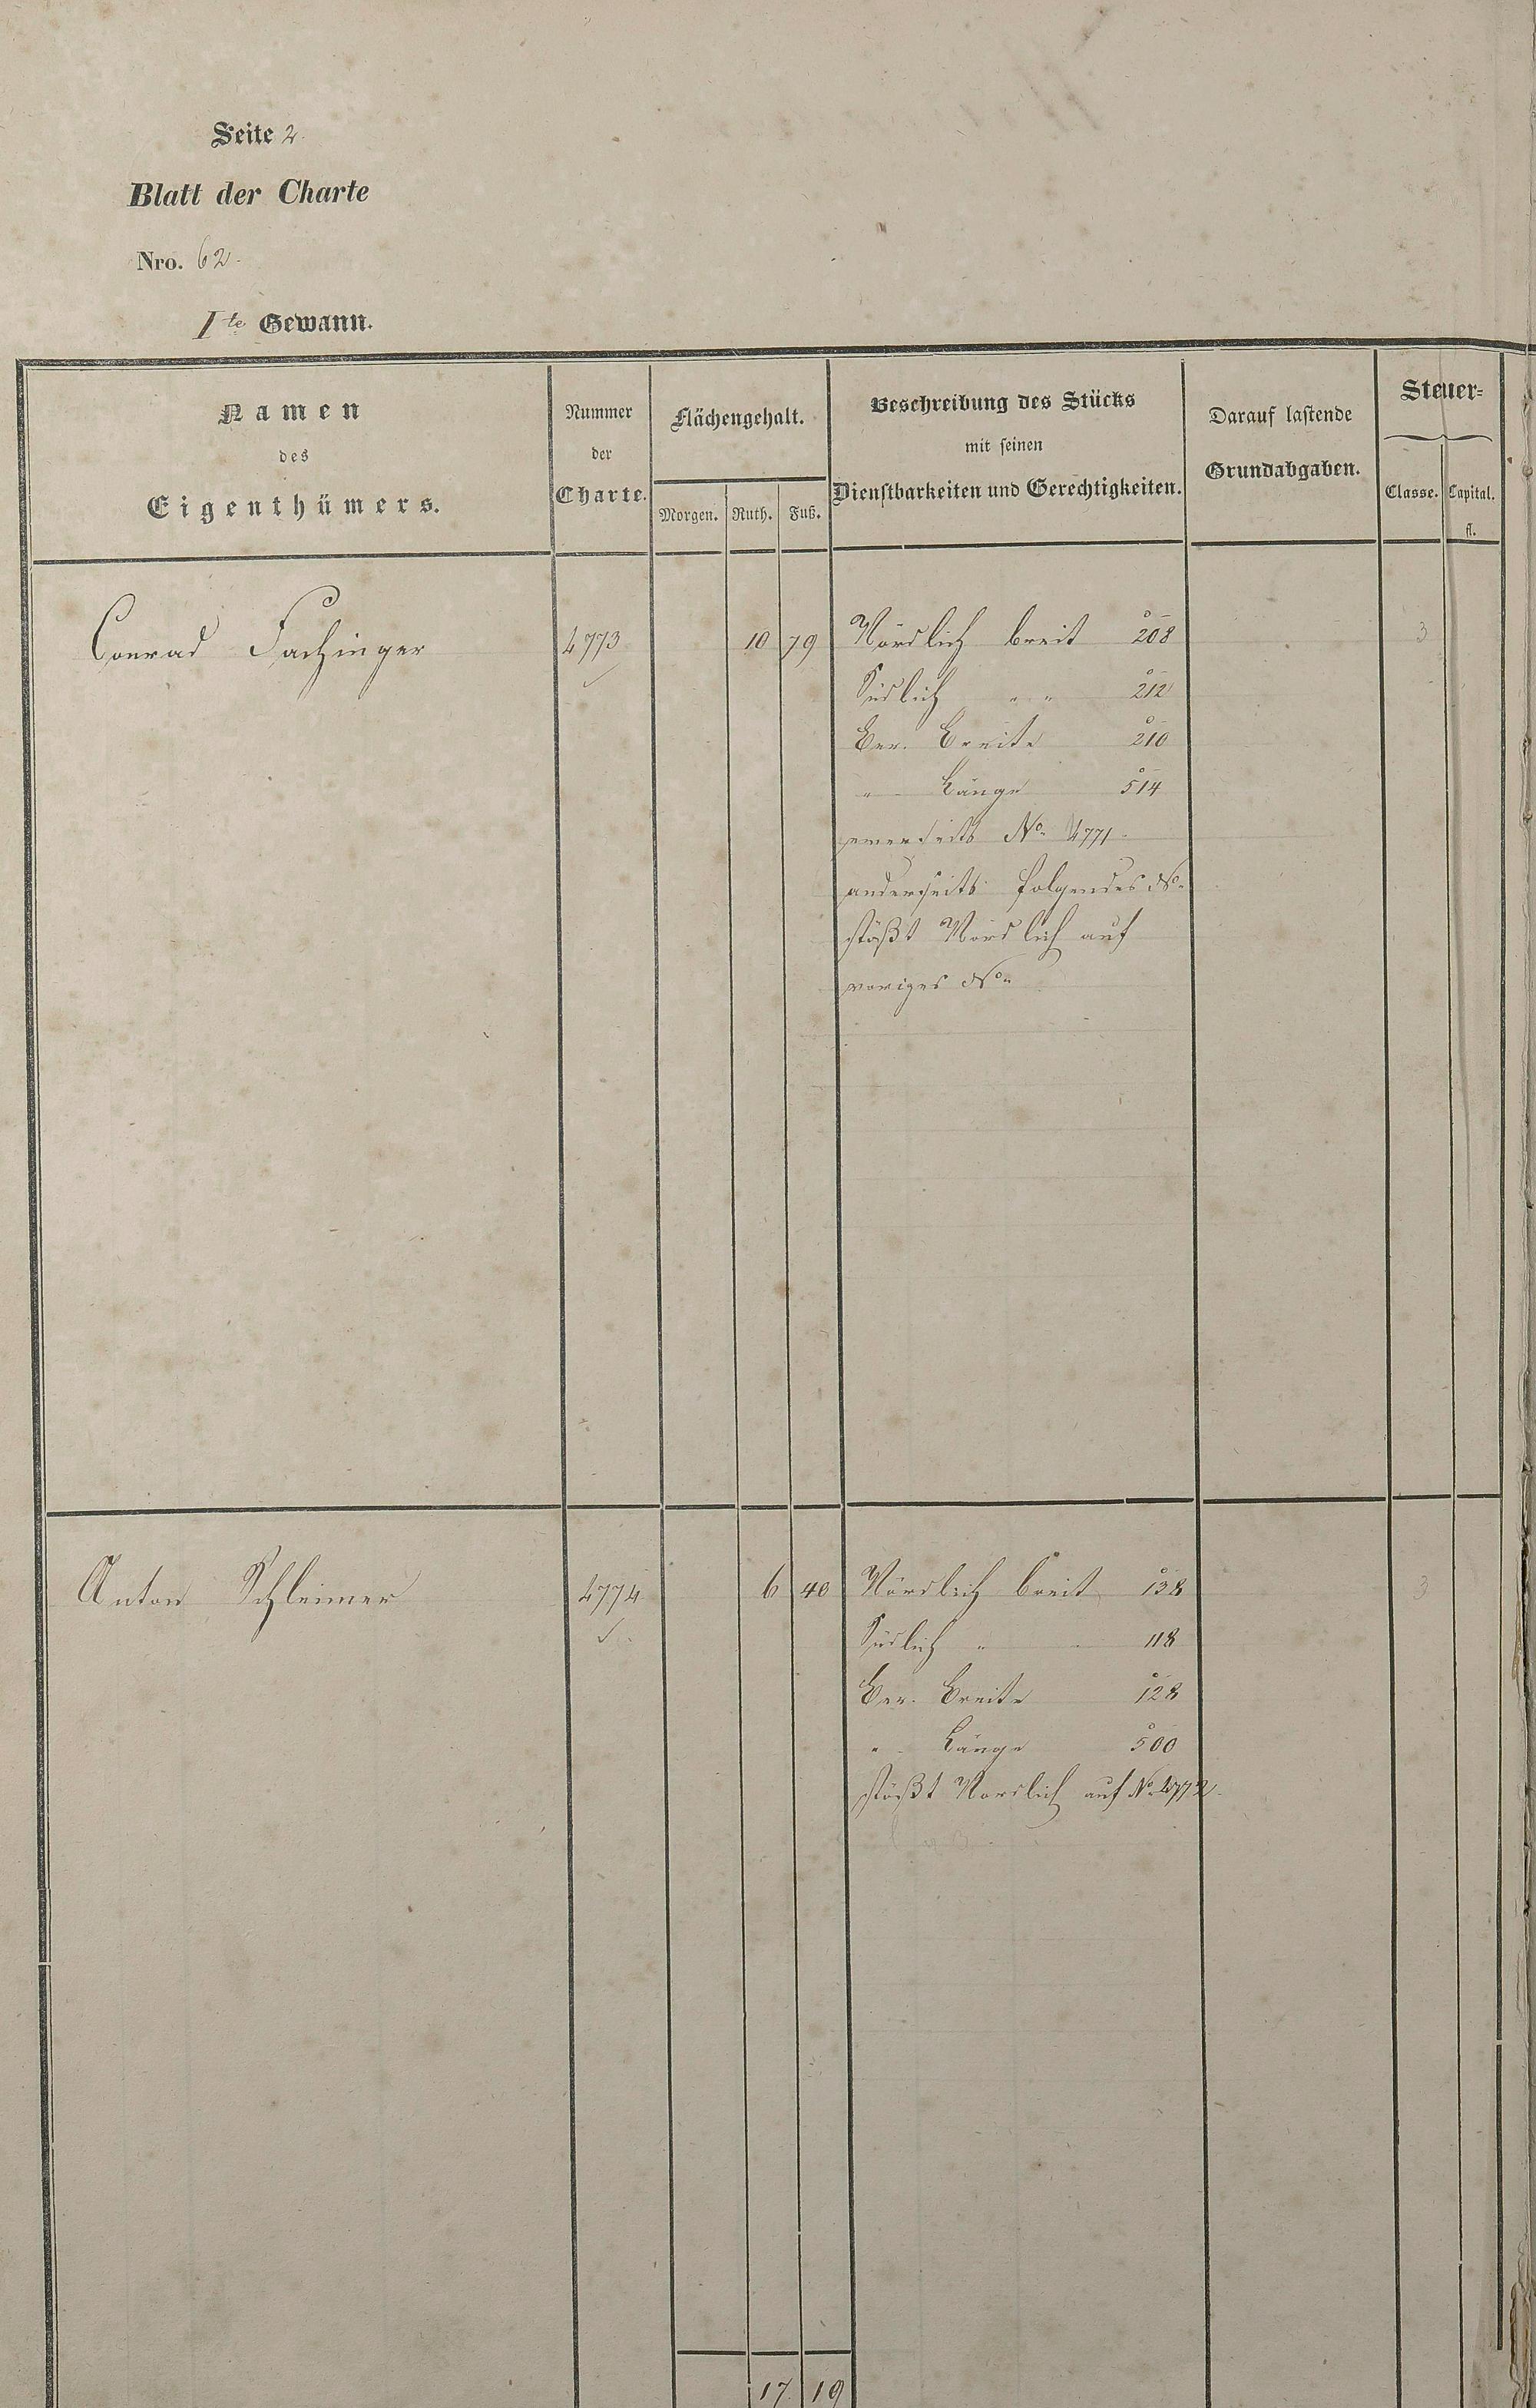 Seite 2.
Blatt der Charte
Nro. 62.
Ite Gewann.
Namen
des
Eigenthümers.
Nummer
der
Charte.
Flächengehalt.
Morgen. Ruth. Fuß.
Beschreibung des Stücks
mit seinen
Dienstbarkeiten und Gerechtigkeiten.
Darauf lastende
Grundabgaben.
Steuer-
Classe. Capital.
fl.
Conrad Fachinger 4773 10 79 Nördlich breit 208 3
Südlich " " 212
Ber. Breite 210
" Länge 514
einerseits No. 4771.
anderseits folgendes No.
stößt Nördlich auf
voriges No.
Anton Schleimer 4774 6 40 Nördlich breit 138 3
Südlich " 118
Ber. Breite 128
" Länge 500
stößt Nordlich auf No. 4772.
17 19